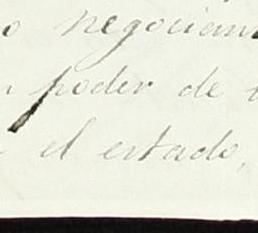 o negocian
poder de
el estado,